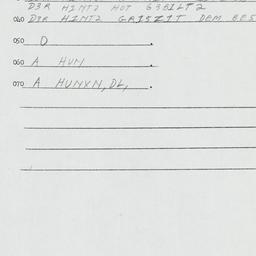 D3R HINTJ HOT G3BILT2
060 D3R HINTJ GRISZIT DEM BES
050 D .
060 A HUN .
070 A HUNYN, DL, .